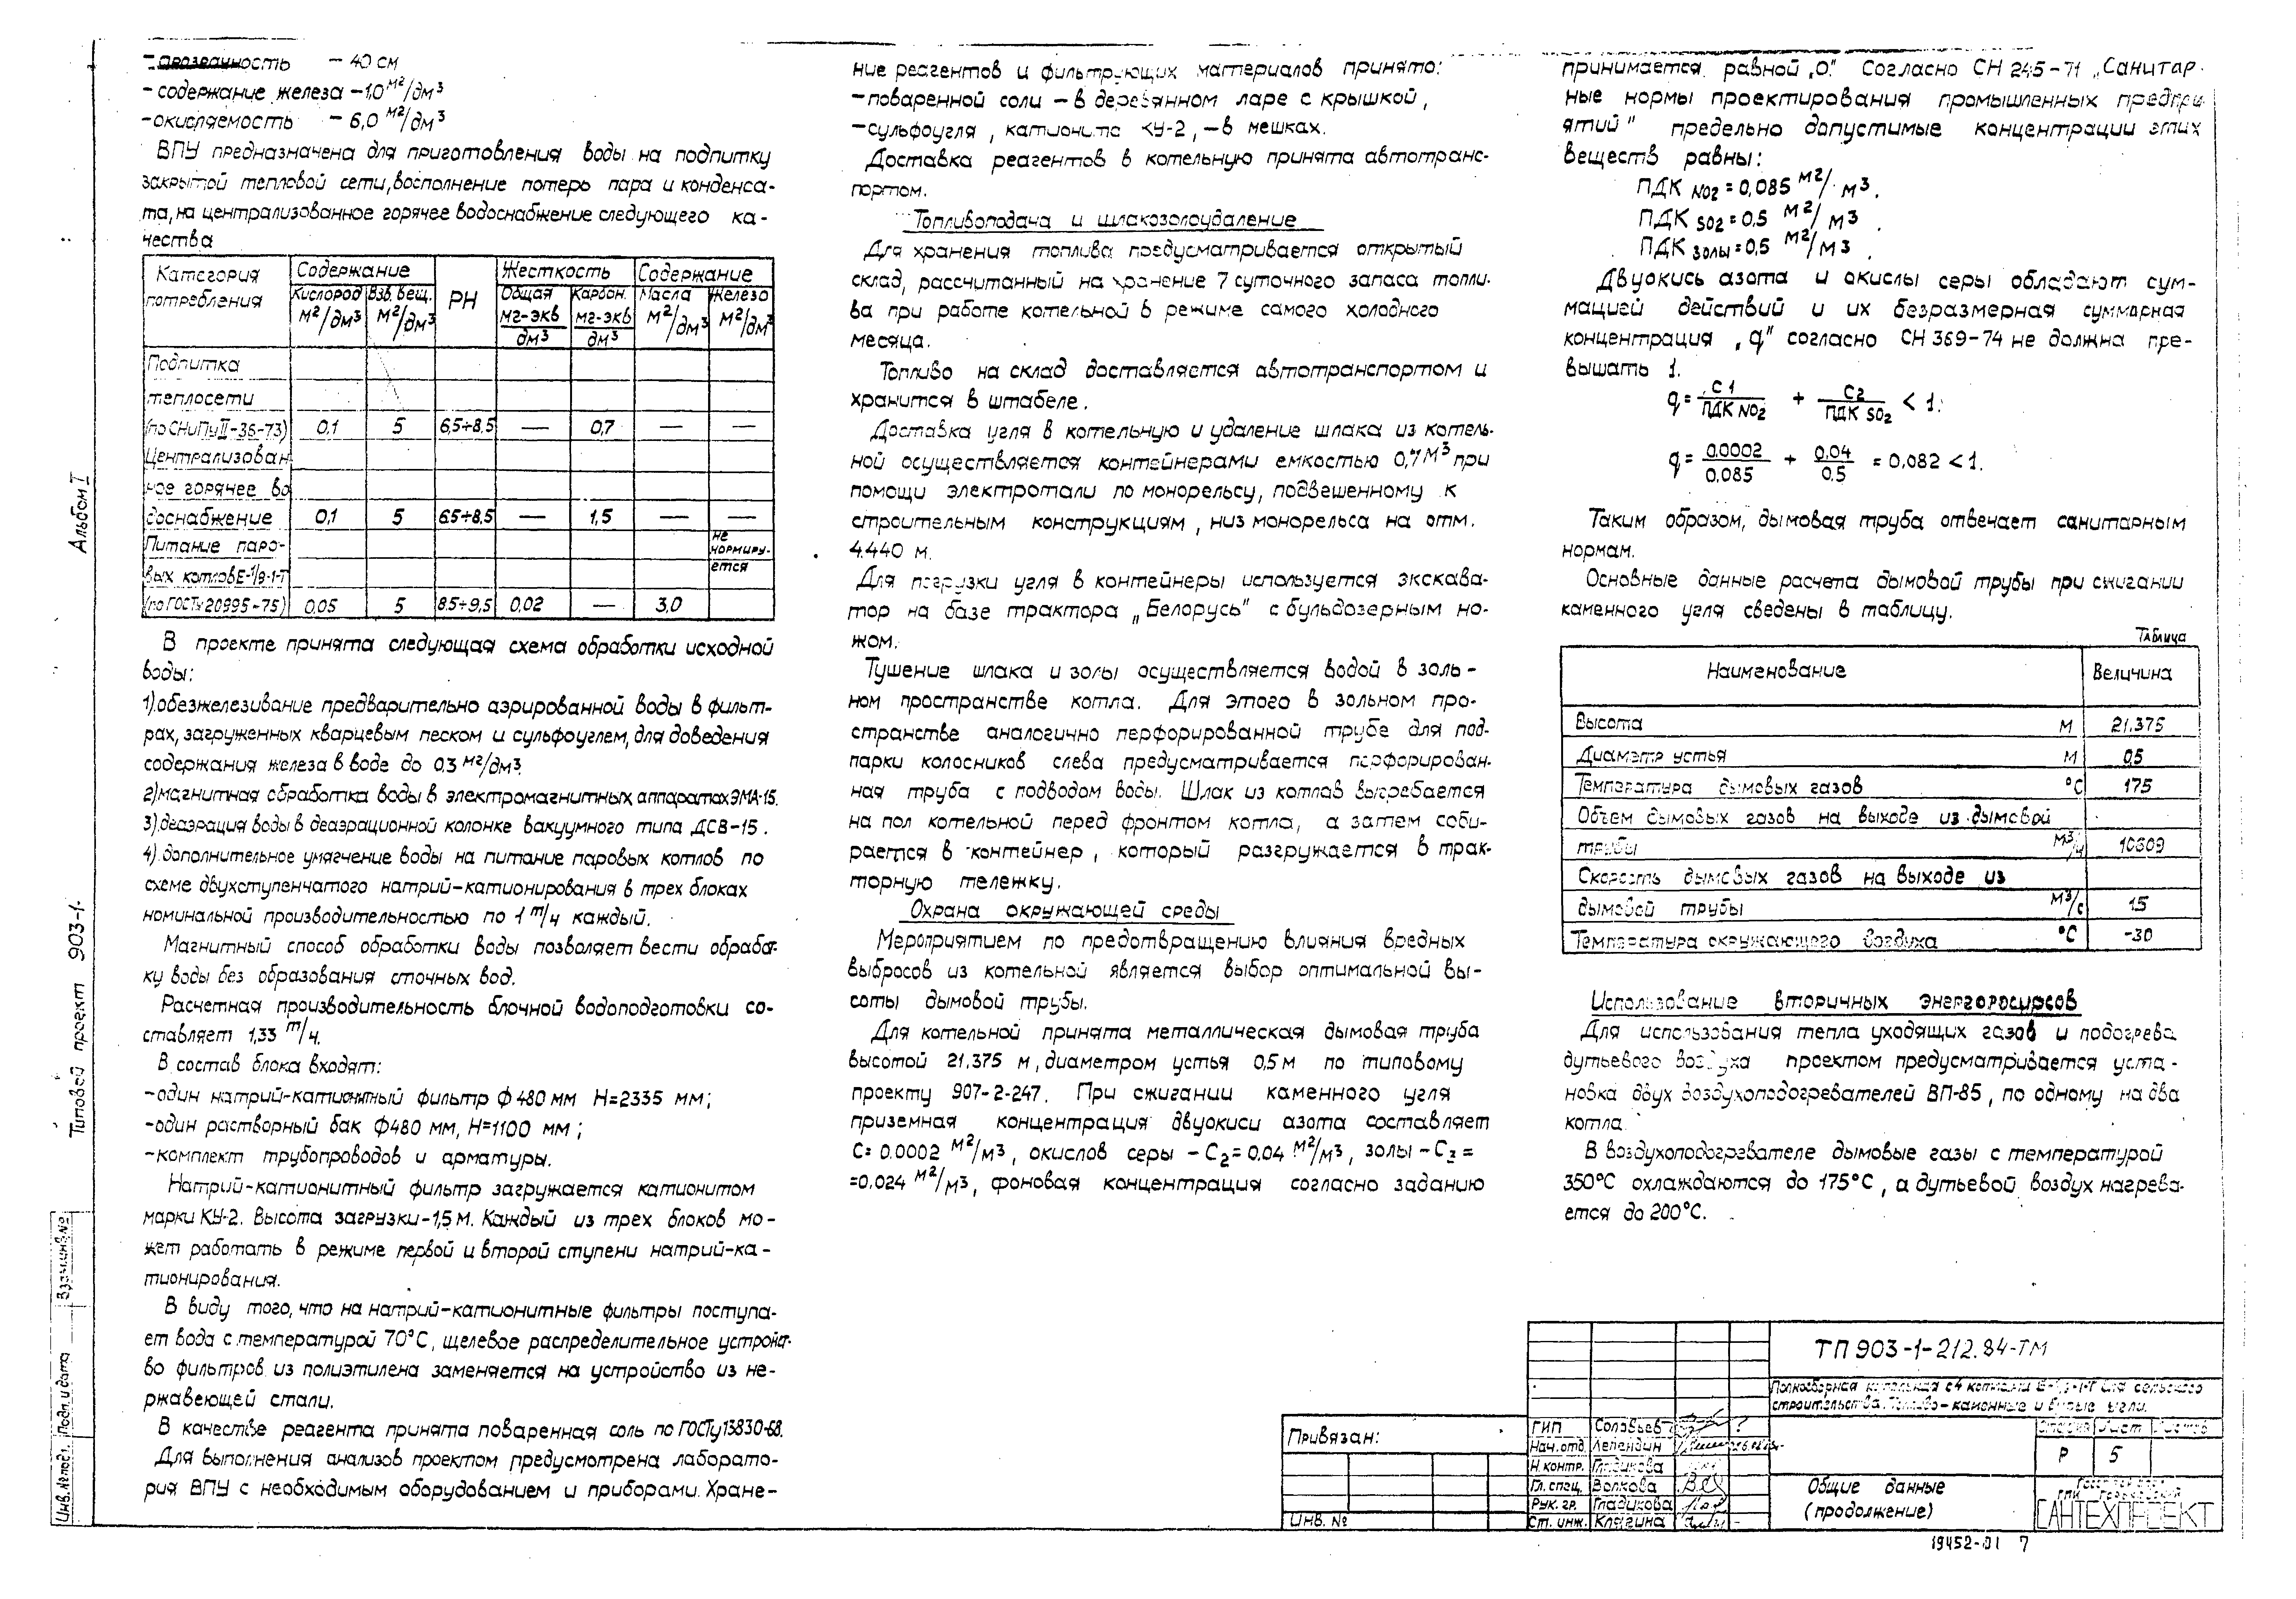 -прозрачность - 40 см
-содержание железа -1,0 мг/дм3
-окисляемость - 6,0 мг/дм3
ВПУ предназначена для приготовления воды на подпитку
закрытой тепловой сети, восполнение потерь пара и конденса-
та, на централизованное горячее водоснабжение следующего ка-
чества
Категория потребления | Содержание | РН | Жесткость | Содержание
Кислород мг/дм3 | Взв. вещ. мг/дм3 | Общая мг-экв/дм3 | Карбон. мг-экв/дм3 | Масла мг/дм3 | Железо мг/дм3
Подпитка
теплосети
(по СНиПу II-36-73) 0,1 5 6,5÷8,5 — 0,7 — —
Централизован
ное горячее во
доснабжение 0,1 5 6,5÷8,5 — 1,5 — —
Питание паро- не нормиру-
вых котлов Е-1/9-1-Т ется
(по ГОСТу 20995-75) 0,05 5 8,5÷9,5 0,02 — 3,0
В проекте принята следующая схема обработки исходной
воды:
1).обезжелезивание предварительно аэрированной воды в фильт-
рах, загруженных кварцевым песком и сульфоуглем, для доведения
содержания железа в воде до 0,3 мг/дм3.
2)магнитная обработка воды в электромагнитных аппаратах ЭМА-15.
3).деаэрация воды в деаэрационной колонке вакуумного типа ДСВ-15.
4).дополнительное умягчение воды на питание паровых котлов по
схеме двухступенчатого натрий-катионирования в трех блоках
номинальной производительностью по 1 т/ч каждый.
Магнитный способ обработки воды позволяет вести обработ-
ку воды без образования сточных вод.
Расчетная производительность блочной водоподготовки со-
ставляет 1,33 т/ч.
В состав блока входят:
-один натрий-катионитный фильтр ф480 мм Н=2335 мм;
-один растворный бак ф480 мм, Н=1100 мм;
-комплект трубопроводов и арматуры.
Натрий-катионитный фильтр загружается катионитом
марки КУ-2. Высота загрузки-1,5 м. Каждый из трех блоков мо-
жет работать в режиме первой и второй ступени натрий-ка-
тионирования.
В виду того, что на натрий-катионитные фильтры поступа-
ет вода с температурой 70°С, щелевое распределительное устройст-
во фильтров из полиэтилена заменяется на устройство из не-
ржавеющей стали.
В качестве реагента принята поваренная соль по ГОСТу 13830-68.
Для выполнения анализов проектом предусмотрена лаборато-
рия ВПУ с необходимым оборудованием и приборами. Хране-
ние реагентов и фильтрующих материалов принято:
-поваренной соли - в деревянном ларе с крышкой,
-сульфоугля, катионита КУ-2, - в мешках.
Доставка реагентов в котельную принята автотранс-
портом.
Топливоподача и шлакозолоудаление
Для хранения топлива предусматривается открытый
склад, рассчитанный на хранение 7 суточного запаса топли-
ва при работе котельной в режиме самого холодного
месяца.
Топливо на склад доставляется автотранспортом и
хранится в штабеле.
Доставка угля в котельную и удаление шлака из котель-
ной осуществляется контейнерами емкостью 0,7 м3 при
помощи электротали по монорельсу, подвешенному к
строительным конструкциям, низ монорельса на отм.
4.440 м.
Для погрузки угля в контейнеры используется экскава-
тор на базе трактора „Белорусь" с бульдозерным но-
жом.
Тушение шлака и золы осуществляется водой в золь-
ном пространстве котла. Для этого в зольном про-
странстве аналогично перфорированной трубе для под-
парки колосников слева предусматривается перфорирован-
ная труба с подводом воды. Шлак из котлов выгребается
на пол котельной перед фронтом котла, а затем соби-
рается в контейнер, который разгружается в трак-
торную тележку.
Охрана окружающей среды
Мероприятием по предотвращению влияния вредных
выбросов из котельной является выбор оптимальной вы-
соты дымовой трубы.
Для котельной принята металлическая дымовая труба
высотой 21,375 м, диаметром устья 0,5 м по типовому
проекту 907-2-247. При сжигании каменного угля
приземная концентрация двуокиси азота составляет
С= 0.0002 мг/м3, окислов серы - С2= 0,04 мг/м3, золы - С3 =
=0,024 мг/м3, фоновая концентрация согласно заданию
принимается равной „0". Согласно СН 245-71 „Санитар-
ные нормы проектирования промышленных предпри
ятий" предельно допустимые концентрации этих
веществ равны:
ПДК NO2 = 0,085 мг/м3.
ПДК SO2 = 0,5 мг/м3.
ПДК золы = 0,5 мг/м3.
Двуокись азота и окислы серы обладают сум-
мацией действий и их безразмерная суммарная
концентрация „q" согласно СН 369-74 не должна пре-
вышать 1.
q = С1/ПДК NO2 + С2/ПДК SO2 < 1.
q = 0.0002/0,085 + 0,04/0,5 = 0,082 < 1.
Таким образом, дымовая труба отвечает санитарным
нормам.
Основные данные расчета дымовой трубы при сжигании
каменного угля сведены в таблицу.
Таблица
Наименование | Величина
Высота м 21.375
Диаметр устья м 0,5
Температура дымовых газов °С 175
Объем дымовых газов на выходе из дымовой
трубы м3/ч 10609
Скорость дымовых газов на выходе из
дымовой трубы м3/с 15
Температура окружающего воздуха °С -30
Использование вторичных энергоресурсов
Для использования тепла уходящих газов и подогрева
дутьевого воздуха проектом предусматривается уста-
новка двух воздухоподогревателей ВП-85, по одному на два
котла.
В воздухоподогревателе дымовые газы с температурой
350°С охлаждаются до 175°С, а дутьевой воздух нагрева-
ется до 200°С.
Альбом I
Типовой проект 903-1-
Инв. № подл. Подп. и дата Взам. инв. №
Привязан:
Инв. №
ТП 903-1-212.84-ТМ
Полносборная котельная с 4 котлами Е-1/9-1-Т для сельского
строительства. Топливо - каменные и бурые угли.
ГИП Соловьев
Нач. отд. Лепендин
Н. контр. Гладикова
Гл. спец. Волкова
Рук. гр. Гладикова
Ст. инж. Клягина
Стадия Лист Листов
Р 5
Общие данные
(продолжение)
САНТЕХПРОЕКТ
19452-01 7